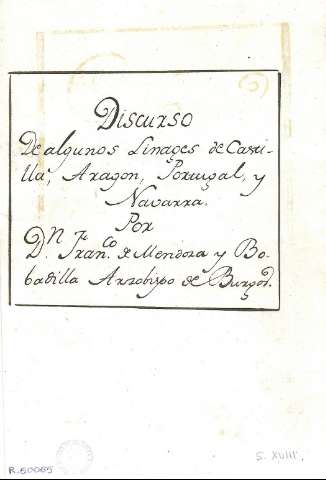 (5)
Discurso
De algunos Linages de Casti-
lla, Aragon, Portugal, y
Navarra.
Por
D.n Fran.co de Mendoza y Bo-
badilla Arzobispo de Burgos.
R.50065
S. XVIII.